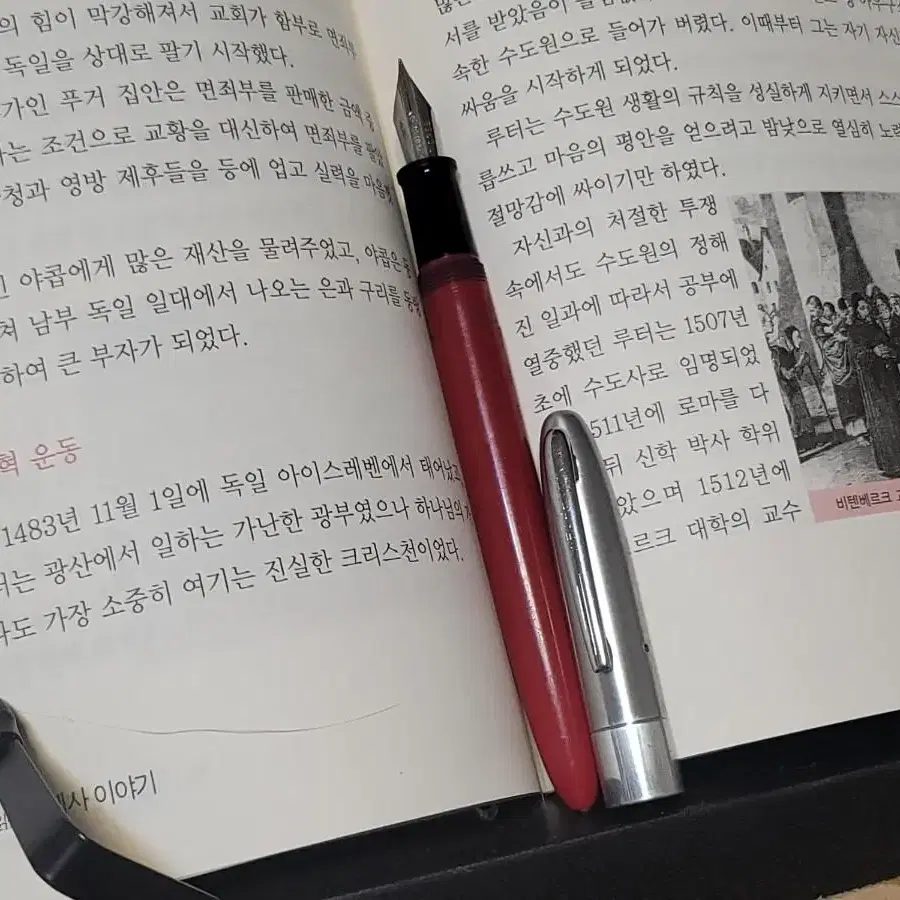 의 힘이 막강해져서 교회가 함부로 면죄부
독일을 상대로 팔기 시작했다.
가인 푸거 집안은 면죄부를 판매한 금액 중
하는 조건으로 교황을 대신하여 면죄부를
청과 영방 제후들을 등에 업고 실력을
야콥에게 많은 재산을 물려주었고, 야콥은
쳐 남부 독일 일대에서 나오는 은과 구리를
하여 큰 부자가 되었다.
혁 운동
1483년 11월 1일에 독일 아이스레벤에서 태어났고
터는 광산에서 일하는 가난한 광부였으나 하나님의
다도 가장 소중히 여기는 진실한 크리스천이었다.
사 이야기
서를 받았음이
속한 수도원으로 들어가 버렸다. 이때부터 그는 자기 자신
싸움을 시작하게 되었다.
루터는 수도원 생활의 규칙을 성실하게 지키면서 스스
릅쓰고 마음의 평안을 얻으려고 밤낮으로 열심히 노력
절망감에 싸이기만 하였다.
자신과의 처절한 투쟁
속에서도 수도원의 정해
진 일과에 따라서 공부에
열중했던 루터는 1507년
초에 수도사로 임명되었
511년에 로마를 다
뒤 신학 박사 학위
았으며 1512년에
르크 대학의 교수
비텐베르크